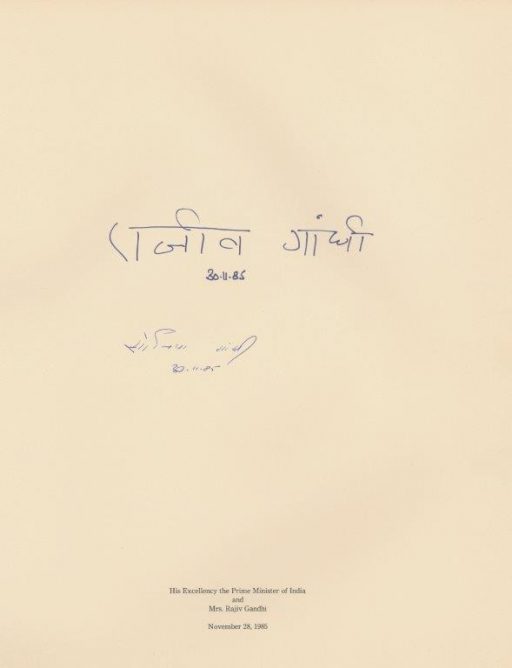 राजीव गांधी
30.11.85
सोनिया गांधी
30.11.85
His Excellency the Prime Minister of India
and
Mrs. Rajiv Gandhi
November 28, 1985